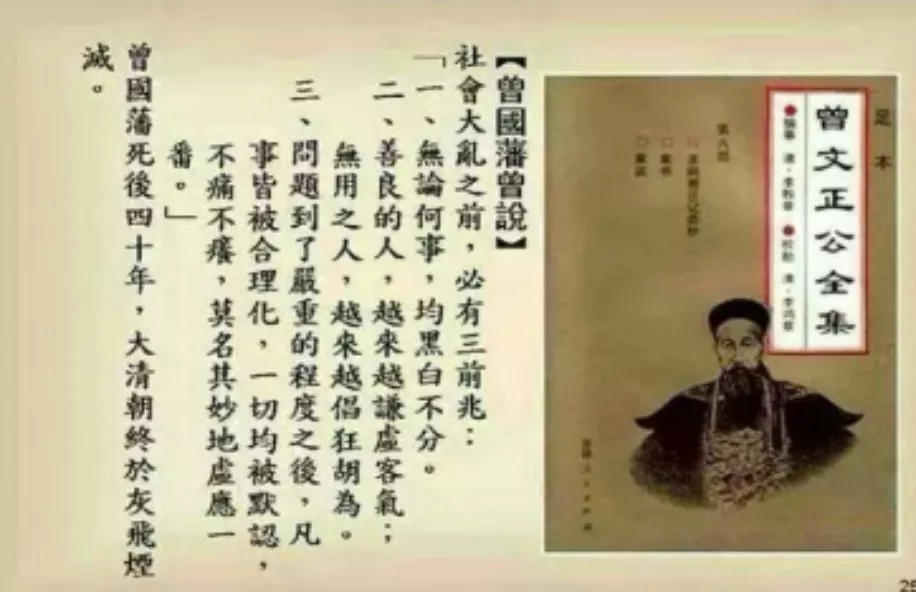 【曾國藩曾說】
社會大亂之前，必有三前兆：
「一、無論何事，均黑白不分。
二、善良的人，越來越謙虛客氣；
無用之人，越來越倡狂胡為。
三、問題到了嚴重的程度之後，凡
事皆被合理化，一切均被默認，
不痛不癢，莫名其妙地虛應一
番。」
曾國藩死後四十年，大清朝終於灰飛煙
滅。
足本
曾文正公全集
第八部